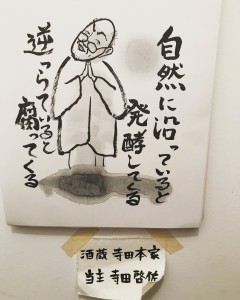 自然に沿っていると
発酵してくる
逆らっていると
腐ってくる
酒蔵 寺田本家
当主 寺田啓佐